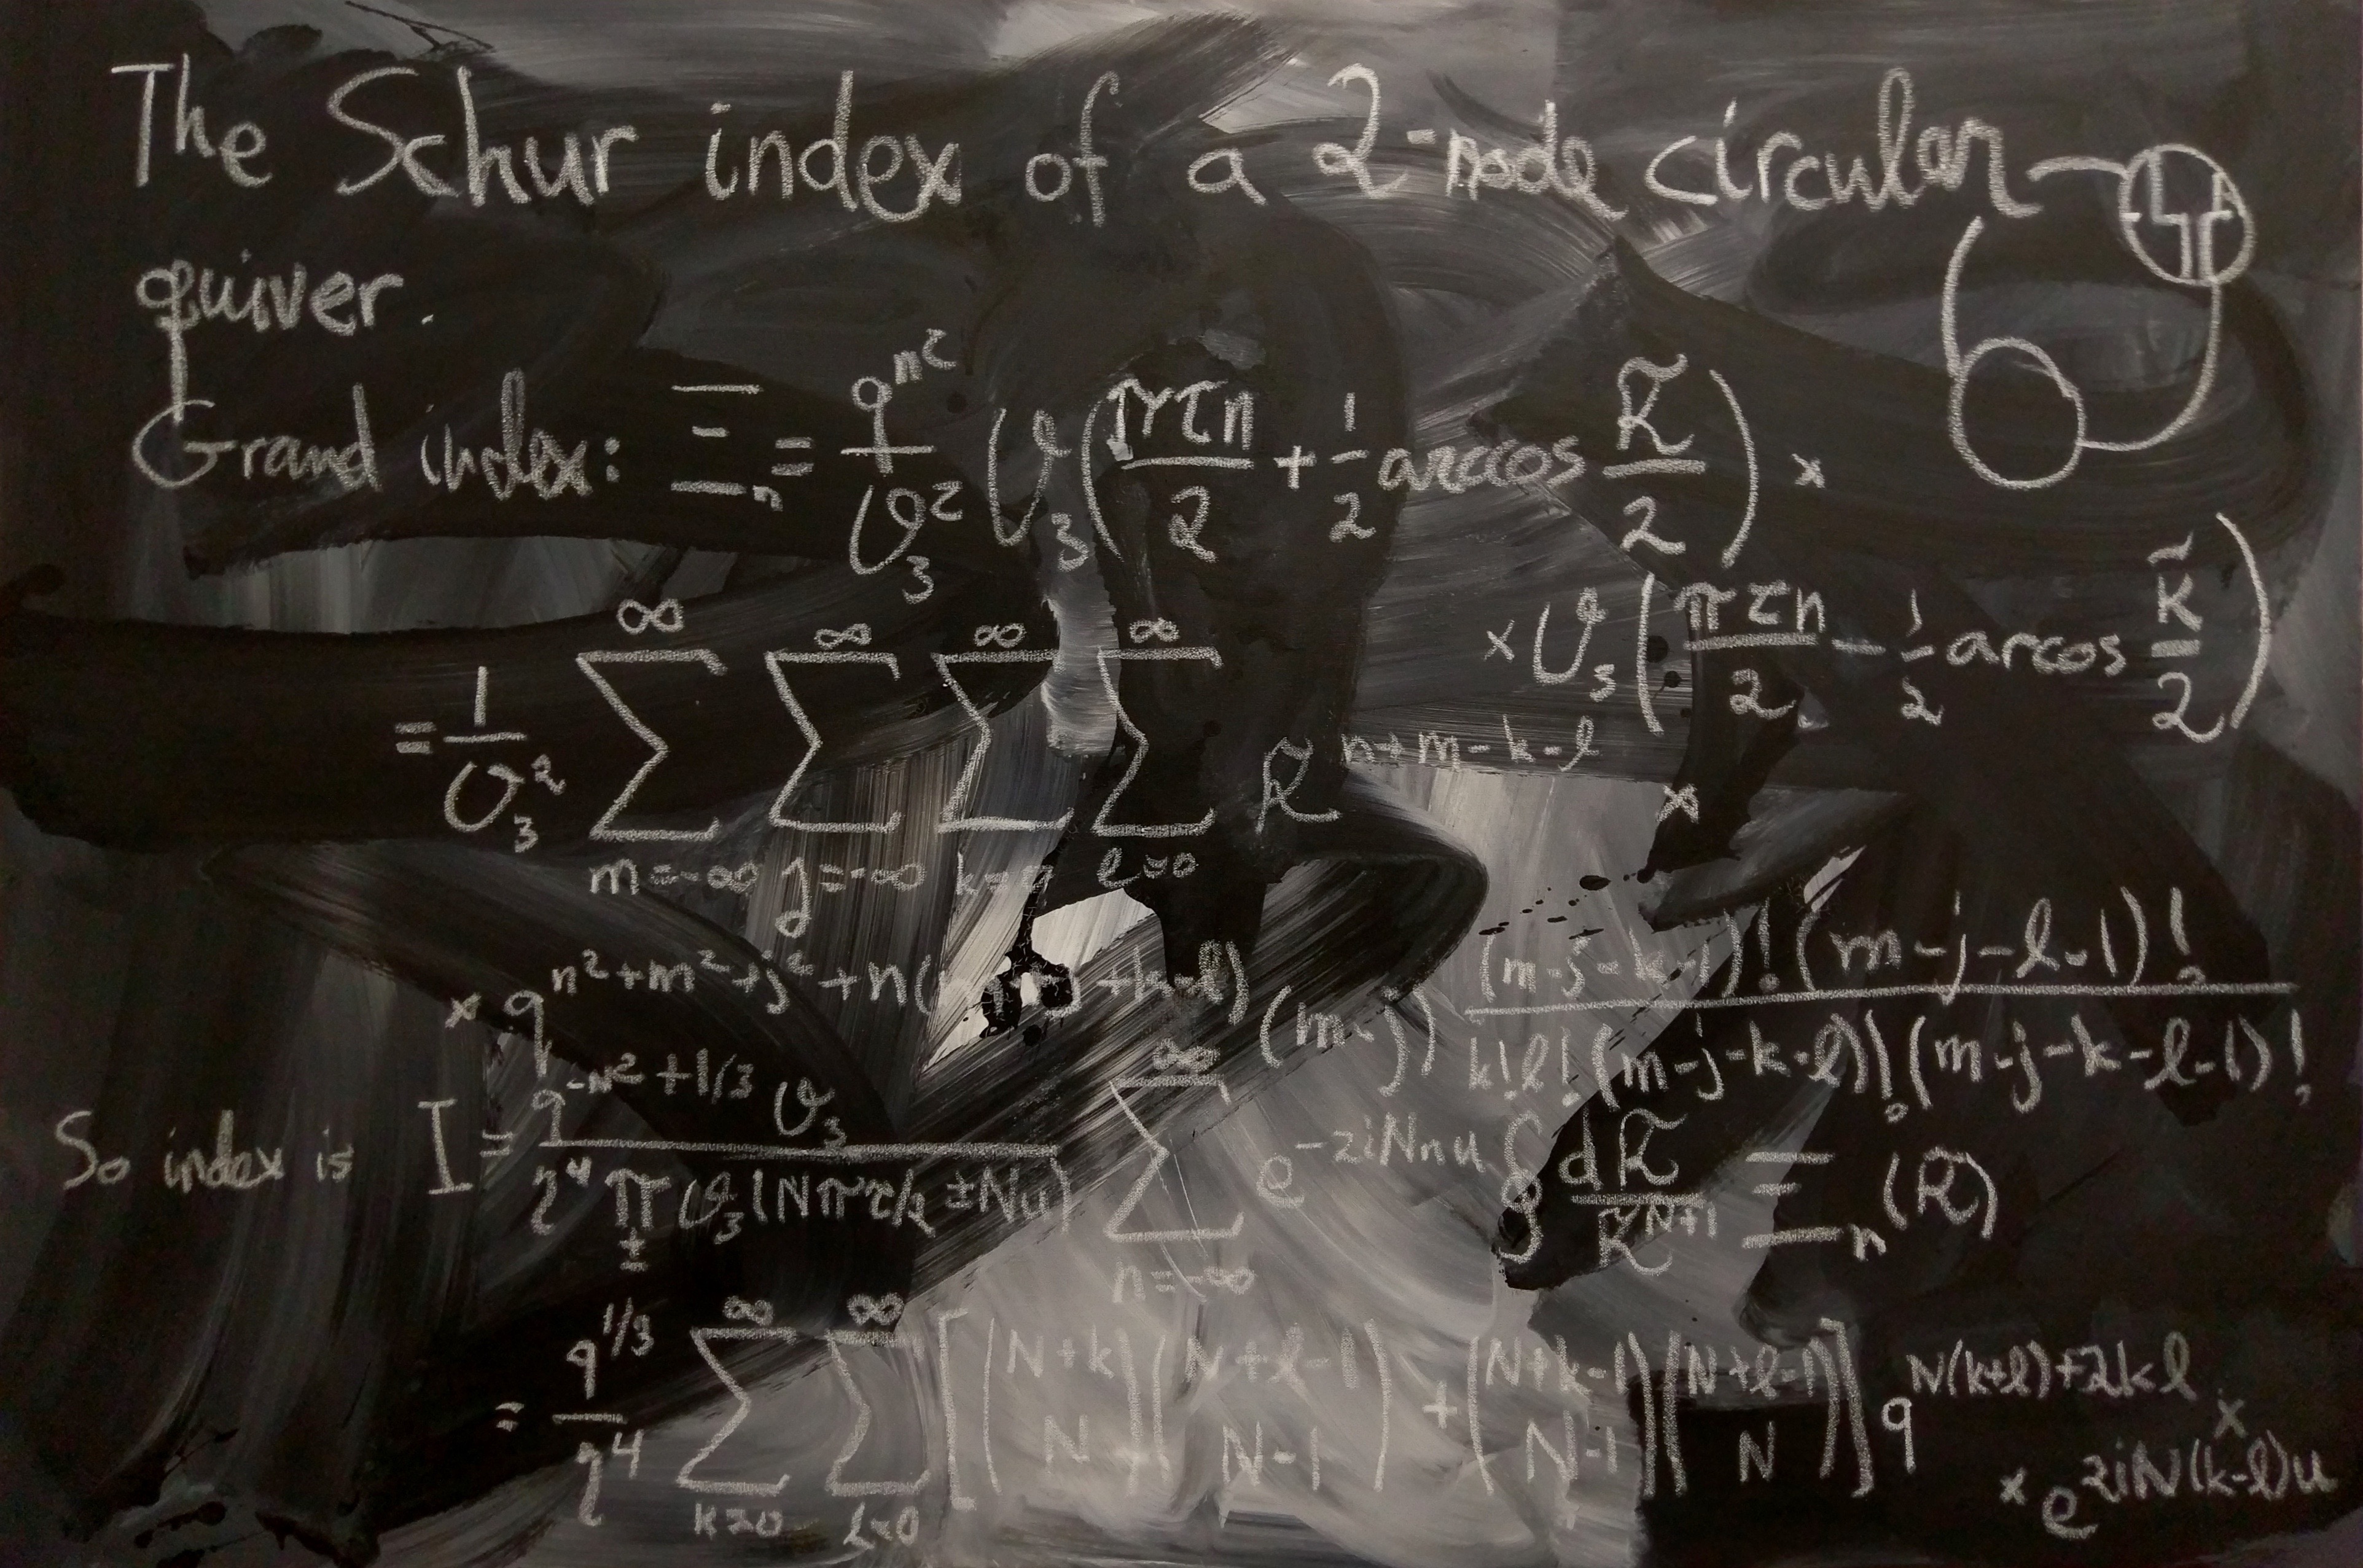 The Schur index of a 2-node circular
quiver.
Grand index: Ξₙ = q^{n²}/ϑ₃² ϑ₃(πτn/2 + 1/2 arccos κ̃/2) ×
× ϑ₃(πτn/2 − 1/2 arcos κ̃/2)
= 1/ϑ₃² ∑_{m=-∞}^{∞} ∑_{j=-∞}^{∞} ∑_{k=0}^{∞} ∑_{l=0}^{∞} κ̃^{n+m-k-l} ×
× q^{n²+m²+j²+n( +k-l)} (m-j) (m-j-k-1)!(m-j-l-1)! / k!l!(m-j-k-l)!(m-j-k-l-1)!
So index is I = q^{-N²+1/3} ϑ₃ / η⁴ ∏_± ϑ₃(Nπτ/2 ± Nu) ∑_{n=-∞}^{∞} e^{-2iNnu} ∮ dκ̃/κ̃^{N+1} Ξₙ(κ̃)
= q^{1/3}/η⁴ ∑_{k=0}^{∞} ∑_{l=0}^{∞} [(N+k N)(N+l-1 N-1) + (N+k-1 N-1)(N+l-1 N)] q^{N(k+l)+2kl} ×
× e^{2iN(k-l)u}